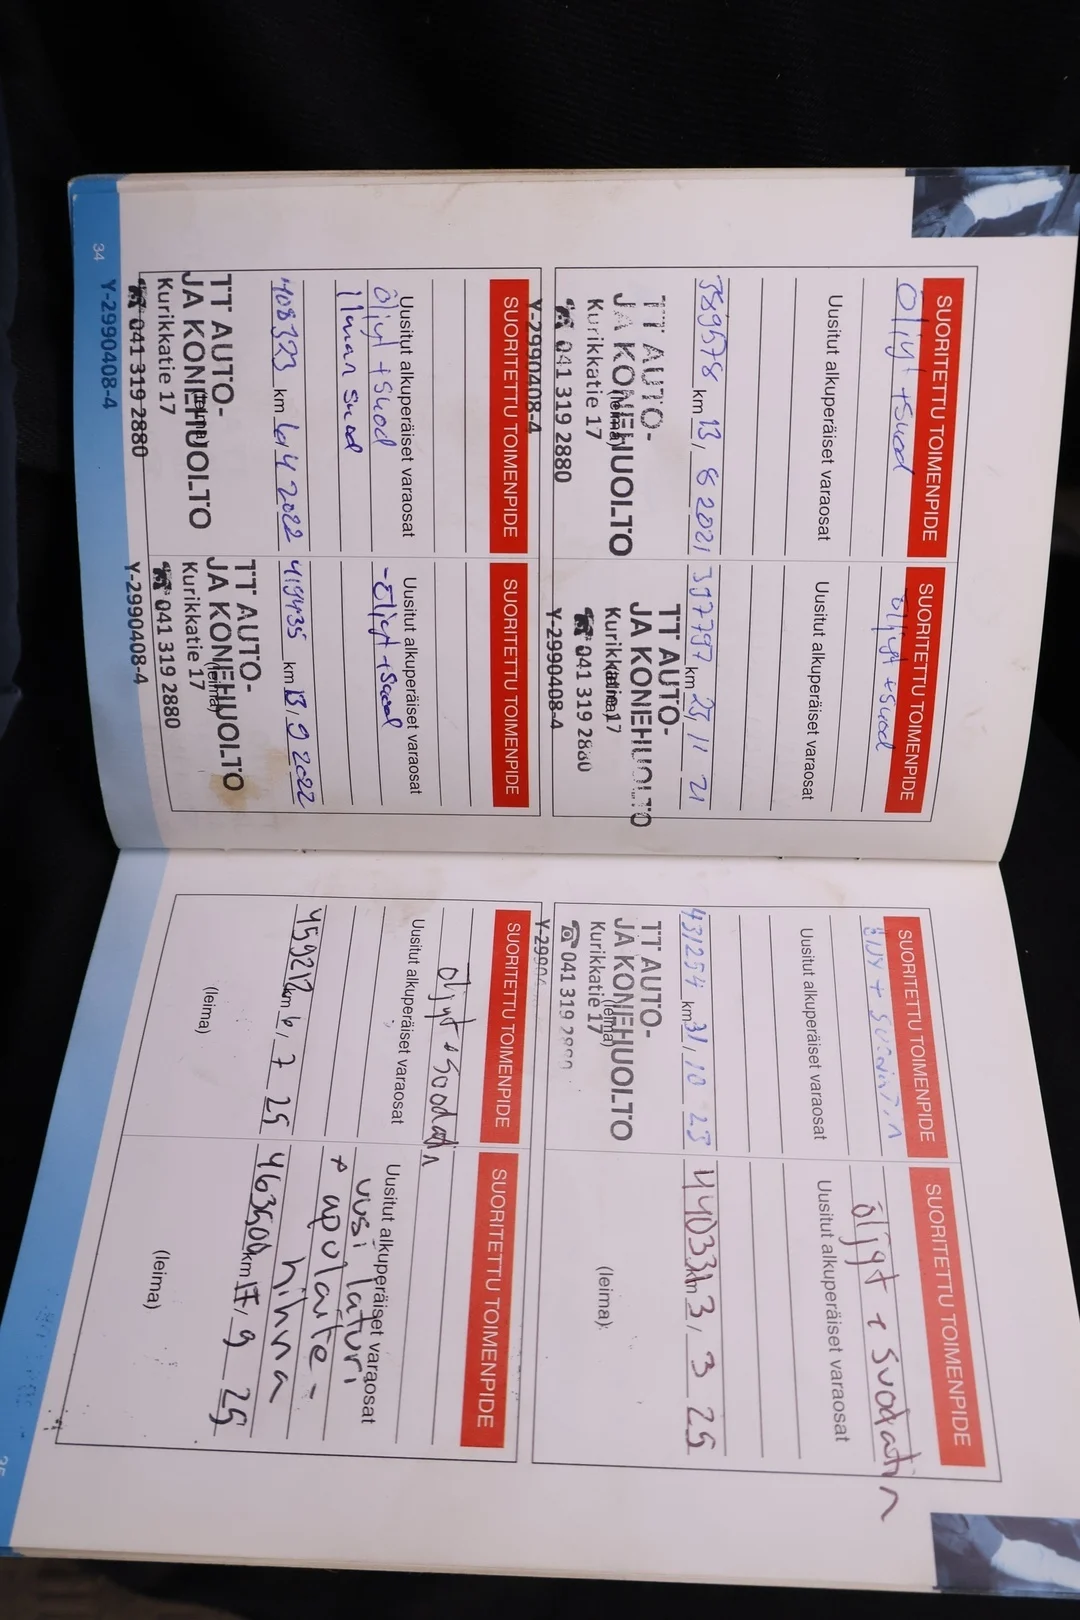 SUORITETTU TOIMENPIDE
Öljyt + Suod
Uusitut alkuperäiset varaosat
389578 km 13, 8 2021
TT AUTO-
JA KONEHUOLTO
(leima)
Kurikkatie 17
☎ 041 319 2880
Y-2990408-4
SUORITETTU TOIMENPIDE
öljyt + Suod
Uusitut alkuperäiset varaosat
397797 km 25, 11 21
TT AUTO-
JA KONEHUOLTO
(leima)
Kurikkatie 17
☎ 041 319 2880
Y-2990408-4
SUORITETTU TOIMENPIDE
Uusitut alkuperäiset varaosat
Öljyt + Suod
Ilman Suod
408323 km 6, 4 2022
TT AUTO-
JA KONEHUOLTO
(leima)
Kurikkatie 17
☎ 041 319 2880
Y-2990408-4
SUORITETTU TOIMENPIDE
Uusitut alkuperäiset varaosat
- Öljyt + Suod
419435 km 13, 9 2022
TT AUTO-
JA KONEHUOLTO
(leima)
Kurikkatie 17
☎ 041 319 2880
Y-2990408-4
34
SUORITETTU TOIMENPIDE
Uusitut alkuperäiset varaosat
431254 km 31, 10 23
TT AUTO-
JA KONEHUOLTO
(leima)
Kurikkatie 17
☎ 041 319 2880
SUORITETTU TOIMENPIDE
öljyt + suodatin
Uusitut alkuperäiset varaosat
44033 km 3, 3 25
(leima)
SUORITETTU TOIMENPIDE
öljyt + suodatin
Uusitut alkuperäiset varaosat
459212 km 6, 7 25
(leima)
SUORITETTU TOIMENPIDE
Uusitut alkuperäiset varaosat
uusi laturi
+ apulaite-
hihna
463500 km 17, 9 25
(leima)